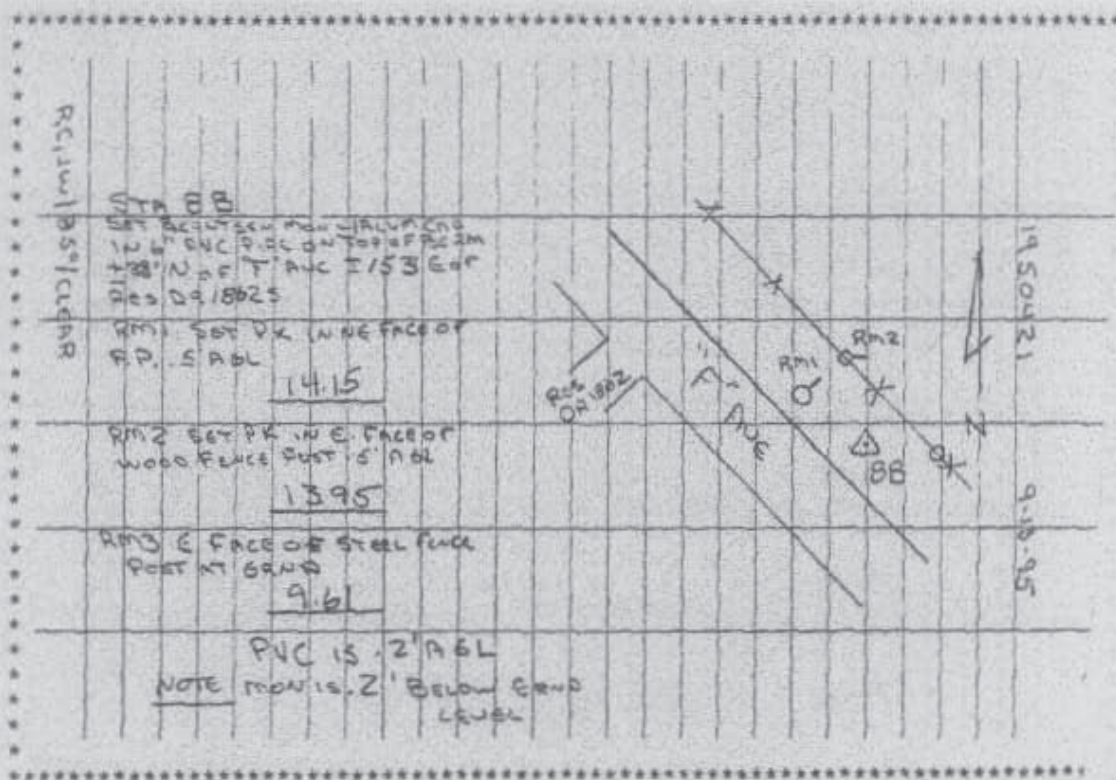 RC, JW / 85°/CLEAR
STA 8B
IN 6" PVC ON TOP OF BERM
N OF "F" AVE ± 153 E OF
Res DR 18625
RM1 SET PK IN NE FACE OF
P.P. .5 AGL
14.15
RM2 SET PK IN E. FACE OF
WOOD FENCE POST .5' AGL
13.95
RM3 E FACE OF STEEL FENCE
POST AT GRND
9.61
PVC IS .2' AGL
NOTE MON IS .2' BELOW GRND
LEVEL
Res
DR 1862
"F" AVE
RM1
RM2
8B
N
1950421
9.18.95